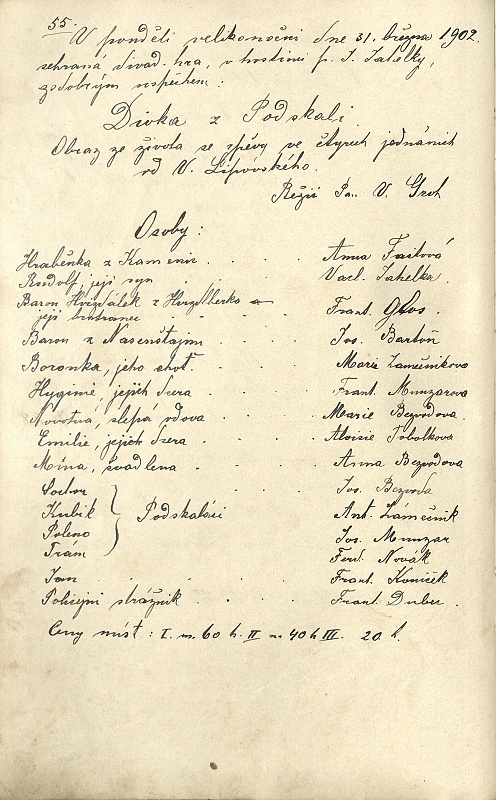 55.
V pondělí velikonoční dne 31. března 1902
sehraná divad. hra, v hostinci p. J. Jahelky,
s dobrým úspěchem:
Dívka z Podskalí
Obraz ze života se zpěvy ve čtyrech jednáních
od V. Lipovského.
Režie Pan V. Groh
Osoby:
Hraběnka z Kamenic . . Anna Faitová
Rudolf, její syn Vacl. Jahelka.
Baron Hvizdálek z Hvizdberko a Frant. Glos.
její bratranec
Baron z Nasenštajnu . . . Jos. Bartoň
Baronka, jeho choť . . . Marie Zámečníkova
Hyginie, jejich dcera . . . Frant. Munzarova
Novotná, slepá vdova . . . Marie Bezvodova.
Emilie, jejich dcera . . . Aloisie Tobolkova
Mína, švadlena . . . Anna Bezvodova
Jos. Bezvoda
Kubík } Podskaláci . . . Ant. Zámečník
Poleno Jos. Munzar
Trám Ferd. Novák
Jan . . . Frant. Koníček
Policejní strážník . . . Frant. Duben.
Ceny míst: I. m. 60 h. II m 40 h III. 20 h.